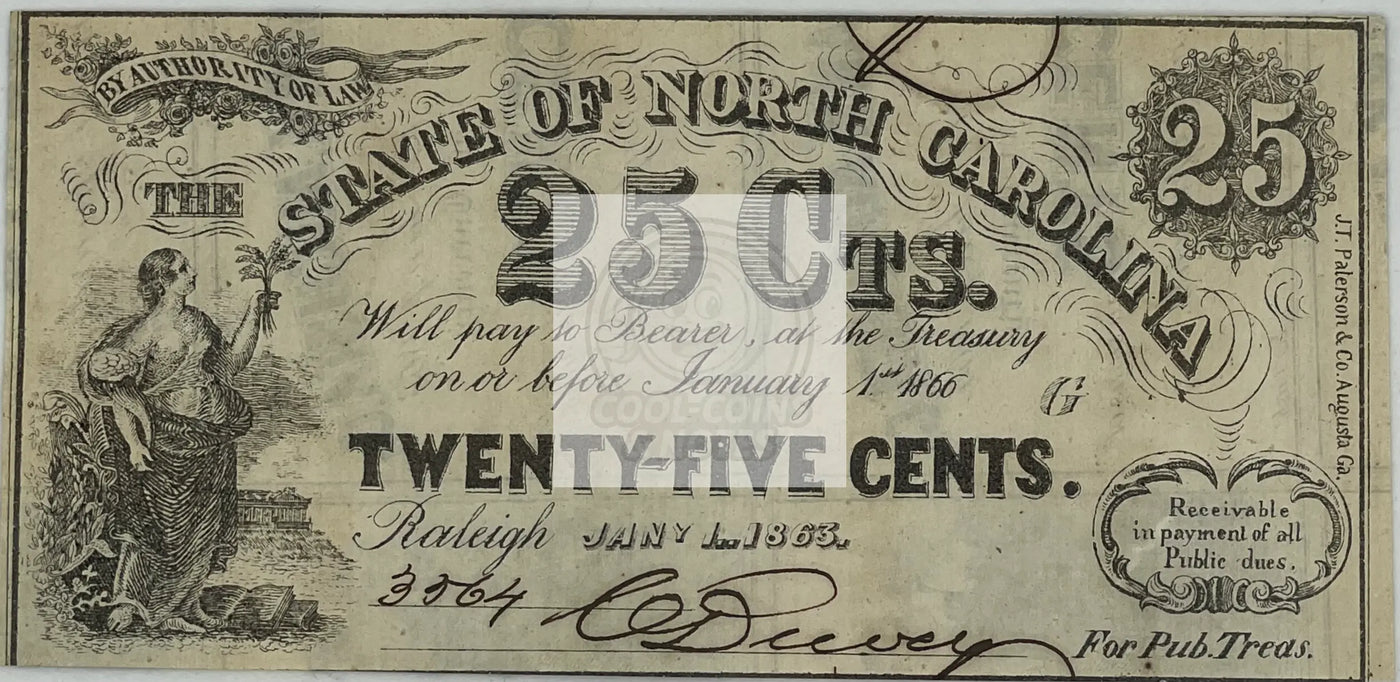 BY AUTHORITY OF LAW
THE
STATE OF NORTH CAROLINA
25
25 CTS.
Will pay to Bearer, at the Treasury
on or before January 1st 1866
G
TWENTY-FIVE CENTS.
Raleigh JANY 1. 1863.
3564
For Pub. Treas.
Receivable
in payment of all
Public dues.
J.T. Paterson & Co. Augusta Ga.
COOL-COINS